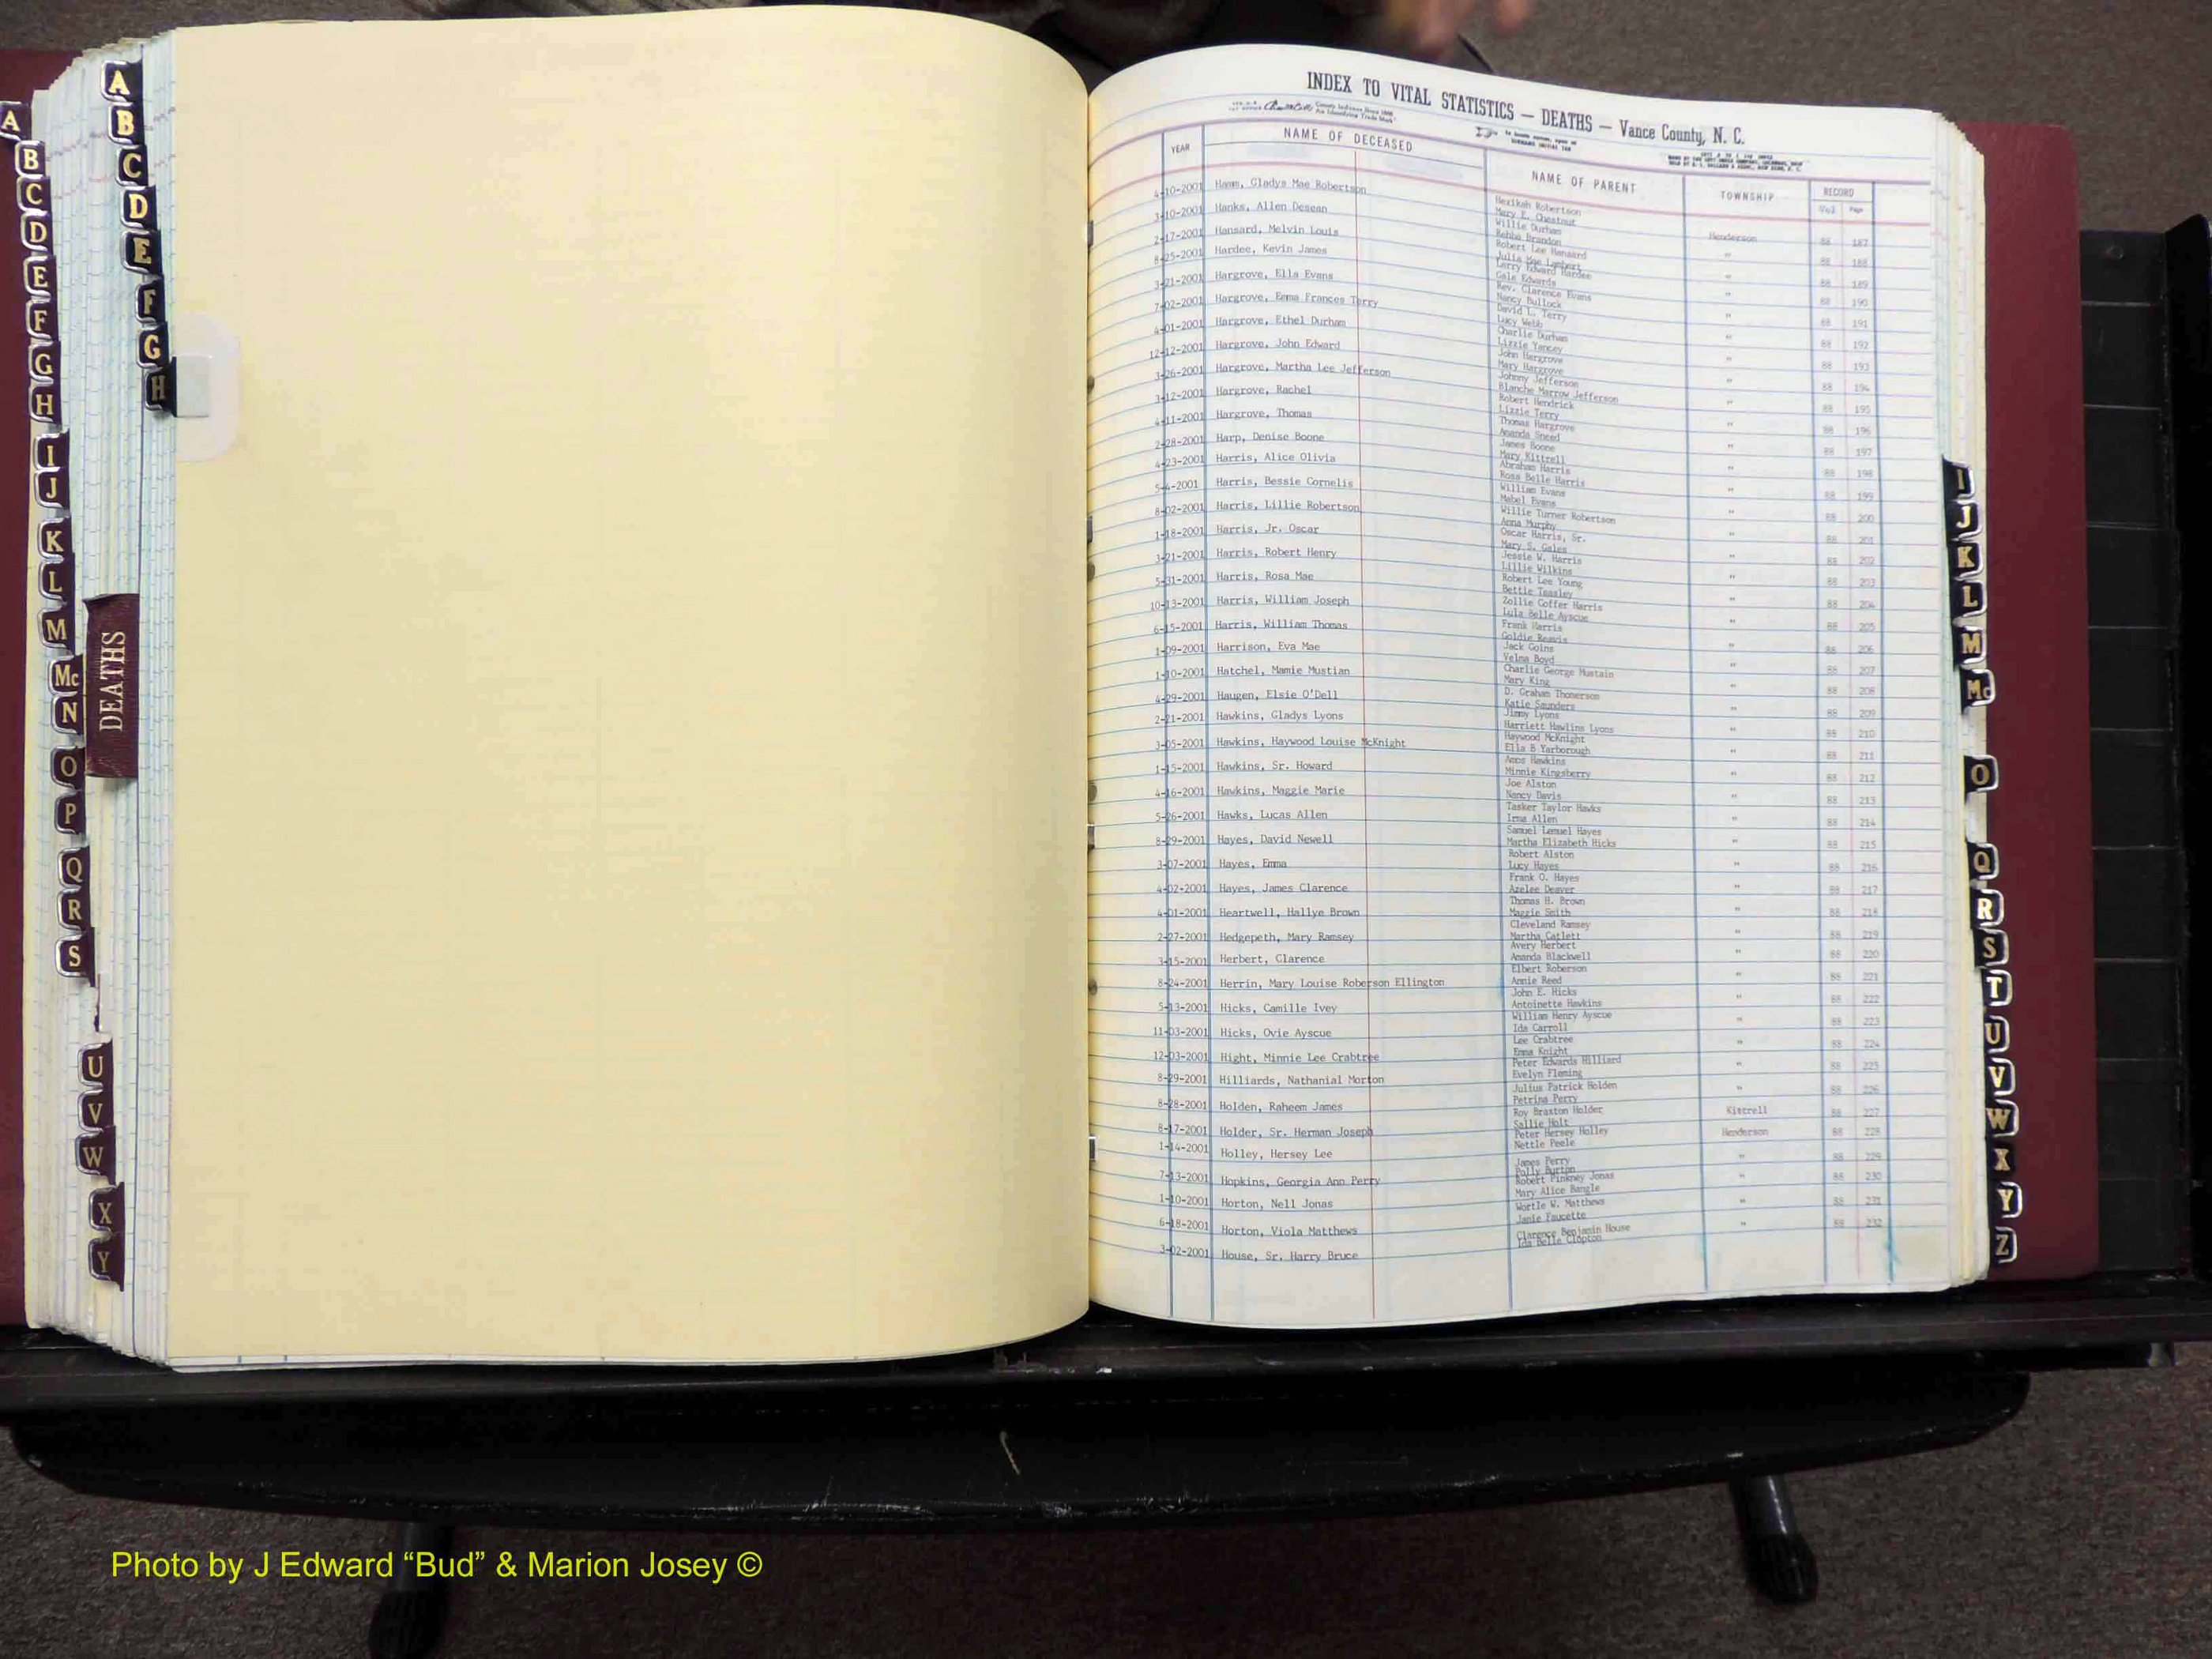 INDEX TO VITAL STATISTICS — DEATHS — Vance County, N. C.
YEAR NAME OF DECEASED NAME OF PARENT TOWNSHIP RECORD
Vol. Page
4-10-2001 Hamm, Gladys Mae Robertson Hezikah Robertson
Mary E. Chestnut Henderson 88 187
3-10-2001 Hanks, Allen Desean Willie Durham
Rehba Brandon " 88 188
2-17-2001 Hansard, Melvin Louis Robert Lee Hansard
Julia Mae Lambert " 88 189
8-25-2001 Hardee, Kevin James Larry Edward Hardee
Gale Edwards " 88 190
3-21-2001 Hargrove, Ella Evans Rev. Clarence Evans
Nancy Bullock " 88 191
7-02-2001 Hargrove, Emma Frances Terry David L. Terry
Lucy Webb " 88 192
4-01-2001 Hargrove, Ethel Durham Charlie Durham
Lizzie Yancey " 88 193
12-12-2001 Hargrove, John Edward John Hargrove
Mary Hargrove " 88 194
3-26-2001 Hargrove, Martha Lee Jefferson Johnny Jefferson
Blanche Marrow Jefferson " 88 195
3-12-2001 Hargrove, Rachel Robert Hendrick
Lizzie Terry " 88 196
4-11-2001 Hargrove, Thomas Thomas Hargrove
Amanda Sneed " 88 197
2-28-2001 Harp, Denise Boone James Boone
Mary Kittrell " 88 198
4-23-2001 Harris, Alice Olivia Abraham Harris
Ross Belle Harris " 88 199
5-4-2001 Harris, Bessie Cornelis William Evans
Mabel Evans " 88 200
8-02-2001 Harris, Lillie Robertson Willie Turner Robertson
Anna Murphy " 88 201
1-18-2001 Harris, Jr. Oscar Oscar Harris, Sr.
Mary S. Gales " 88 202
3-21-2001 Harris, Robert Henry Jessie W. Harris
Lillie Wilkins " 88 203
5-31-2001 Harris, Rosa Mae Robert Lee Young
Bettie Teasley " 88 204
10-13-2001 Harris, William Joseph Zollie Coffer Harris
Lula Belle Ayscue " 88 205
6-15-2001 Harris, William Thomas Frank Harris
Goldie Reavis " 88 206
1-09-2001 Harrison, Eva Mae Jack Goins
Velma Boyd " 88 207
1-10-2001 Hatchel, Mamie Mustian Charlie George Mustain
Mary King " 88 208
4-29-2001 Haugen, Elsie O'Dell D. Graham Thomerson
Katie Saunders " 88 209
2-21-2001 Hawkins, Gladys Lyons Jimmy Lyons
Harriett Hawlins Lyons " 88 210
3-05-2001 Hawkins, Haywood Louise McKnight Haywood McKnight
Ella B Yarborough " 88 211
1-15-2001 Hawkins, Sr. Howard Amos Hawkins
Minnie Kingsberry " 88 212
4-16-2001 Hawkins, Maggie Marie Joe Alston
Nancy Davis " 88 213
5-26-2001 Hawks, Lucas Allen Tasker Taylor Hawks
Irma Allen " 88 214
8-29-2001 Hayes, David Newell Samuel Lemuel Hayes
Martha Elizabeth Hicks " 88 215
3-07-2001 Hayes, Emma Robert Alston
Lucy Hayes " 88 216
4-02-2001 Hayes, James Clarence Frank O. Hayes
Azelee Deaver " 88 217
4-01-2001 Heartwell, Hallye Brown Thomas H. Brown
Maggie Smith " 88 218
2-27-2001 Hedgepeth, Mary Ramsey Cleveland Ramsey
Martha Catlett " 88 219
3-15-2001 Herbert, Clarence Avery Herbert
Amanda Blackwell " 88 220
8-24-2001 Herrin, Mary Louise Roberson Ellington Elbert Roberson
Annie Reed " 88 221
5-13-2001 Hicks, Camille Ivey John E. Hicks
Antoinette Hawkins " 88 222
11-03-2001 Hicks, Ovie Ayscue William Henry Ayscue
Ida Carroll " 88 223
12-03-2001 Hight, Minnie Lee Crabtree Lee Crabtree
Emma Knight " 88 224
8-29-2001 Hilliards, Nathanial Morton Peter Edwards Hilliard
Evelyn Fleming " 88 225
8-28-2001 Holden, Raheem James Julius Patrick Holden
Petrina Perry " 88 226
8-17-2001 Holder, Sr. Herman Joseph Roy Braxton Holder
Sallie Holt Kittrell 88 227
1-14-2001 Holley, Hersey Lee Peter Hersey Holley
Nettie Peele Henderson 88 228
7-13-2001 Hopkins, Georgia Ann Perry James Perry
Polly Burton " 88 229
1-10-2001 Horton, Nell Jonas Robert Pinkney Jonas
Mary Alice Bangle " 88 230
6-18-2001 Horton, Viola Matthews Wortle W. Matthews
Janie Faucette " 88 231
3-02-2001 House, Sr. Harry Bruce Clarence Benjamin House
Ida Belle Clopton " 88 232
A
B
C
D
E
F
G
H
I
J
K
L
M
Mc
N
O
P
Q
R
S
U
V
W
X
Y
DEATHS
A
B
C
D
E
F
G
H
I
J
K
L
M
Mc
O
Q
R
S
T
U
V
W
X
Y
Z
Photo by J Edward “Bud” & Marion Josey ©